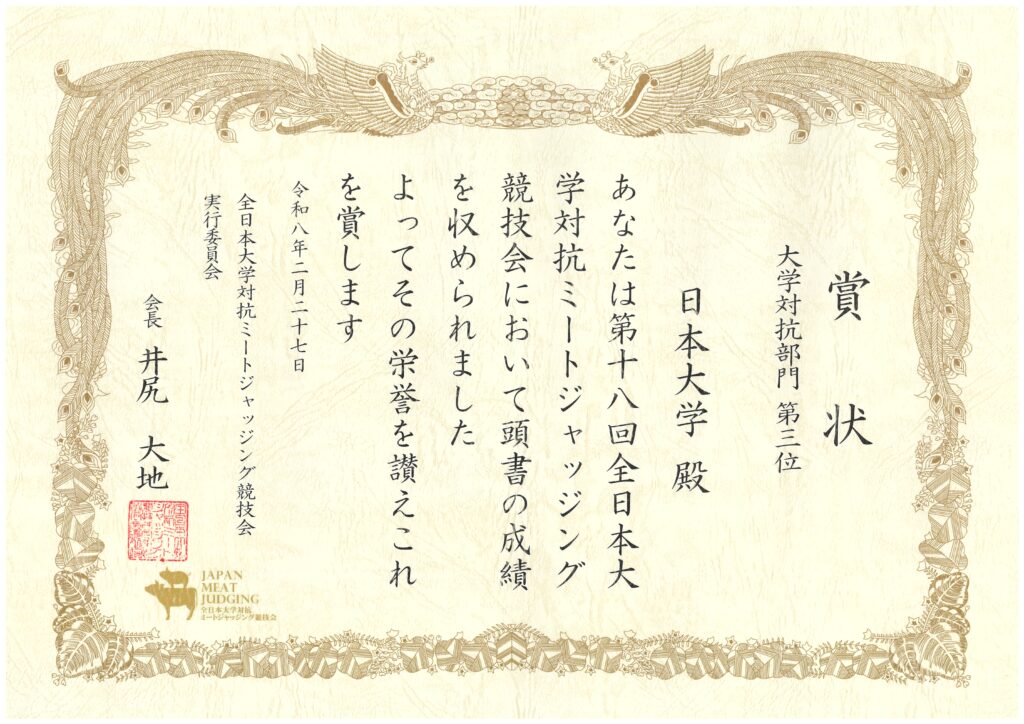 賞状
大学対抗部門 第三位
日本大学 殿
あなたは第十八回全日本大
学対抗ミートジャッジング
競技会において頭書の成績
を収められました
よってその栄誉を讃えこれ
を賞します
令和八年二月二十七日
全日本大学対抗ミートジャッジング競技会
実行委員会
会長 井尻 大地
JAPAN
MEAT
JUDGING
全日本大学対抗
ミートジャッジング競技会